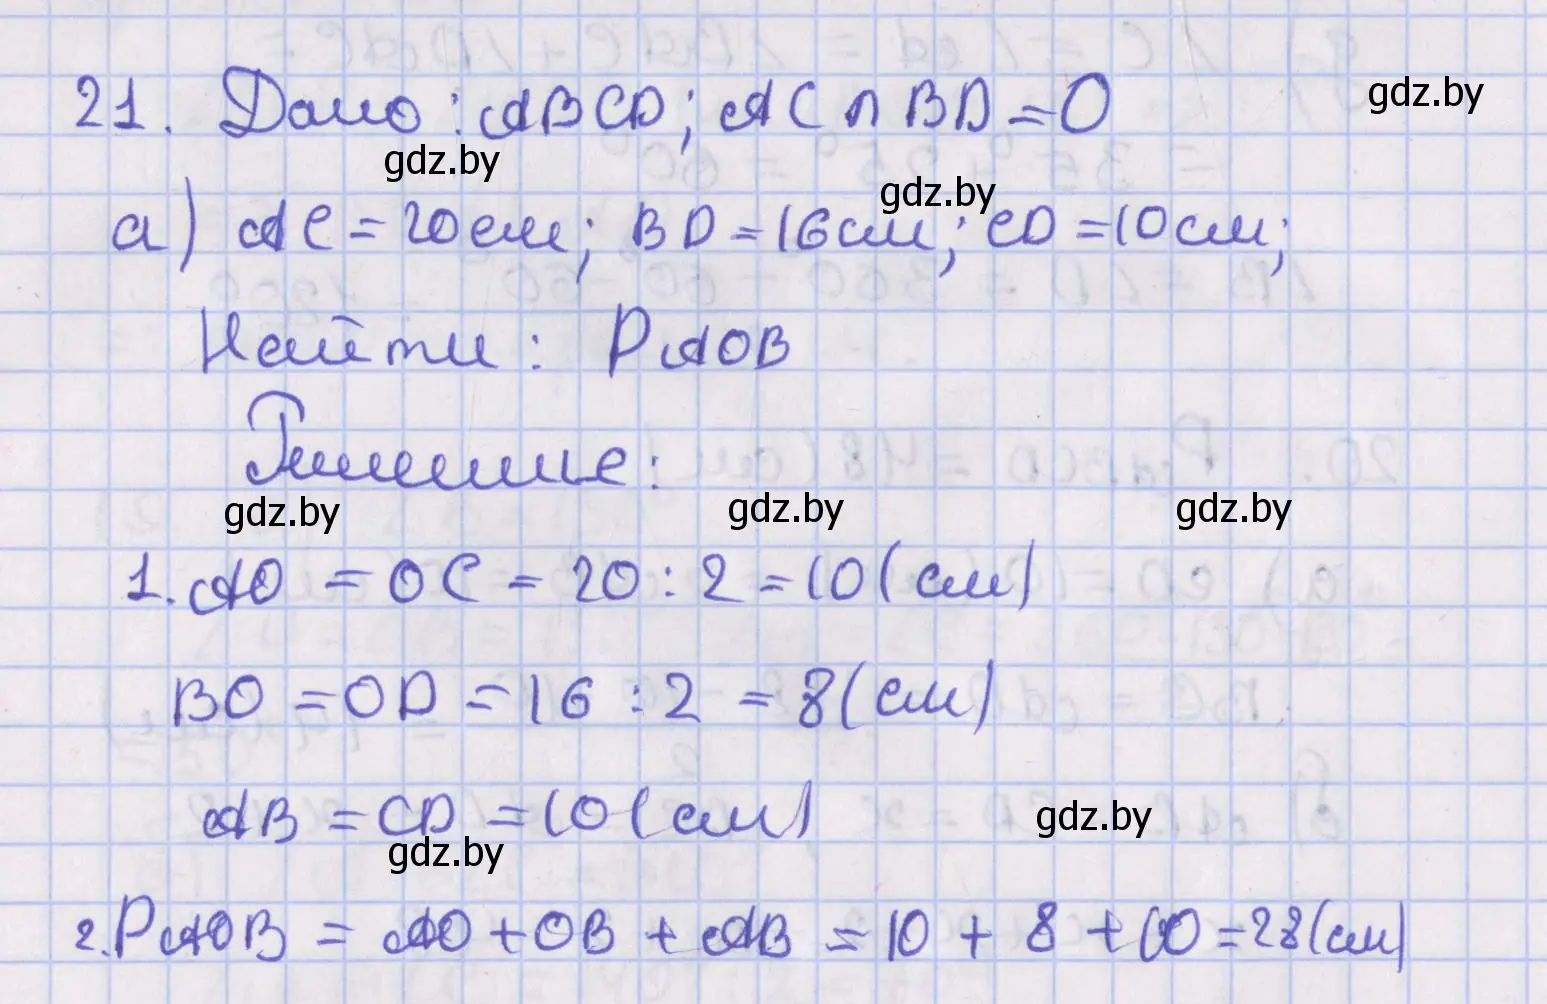 21. Дано: ABCD; AC ∩ BD = O
gdz.by
gdz.by
gdz.by
а) AC = 20см; BD = 16см; CD = 10см;
Найти: PAOB
Решение:
gdz.by
gdz.by
gdz.by
1. AO = OC = 20 : 2 = 10 (см)
BO = OD = 16 : 2 = 8 (см)
AB = CD = 10 (см)
gdz.by
gdz.by
2. PAOB = AO + OB + AB = 10 + 8 + 10 = 28 (см)